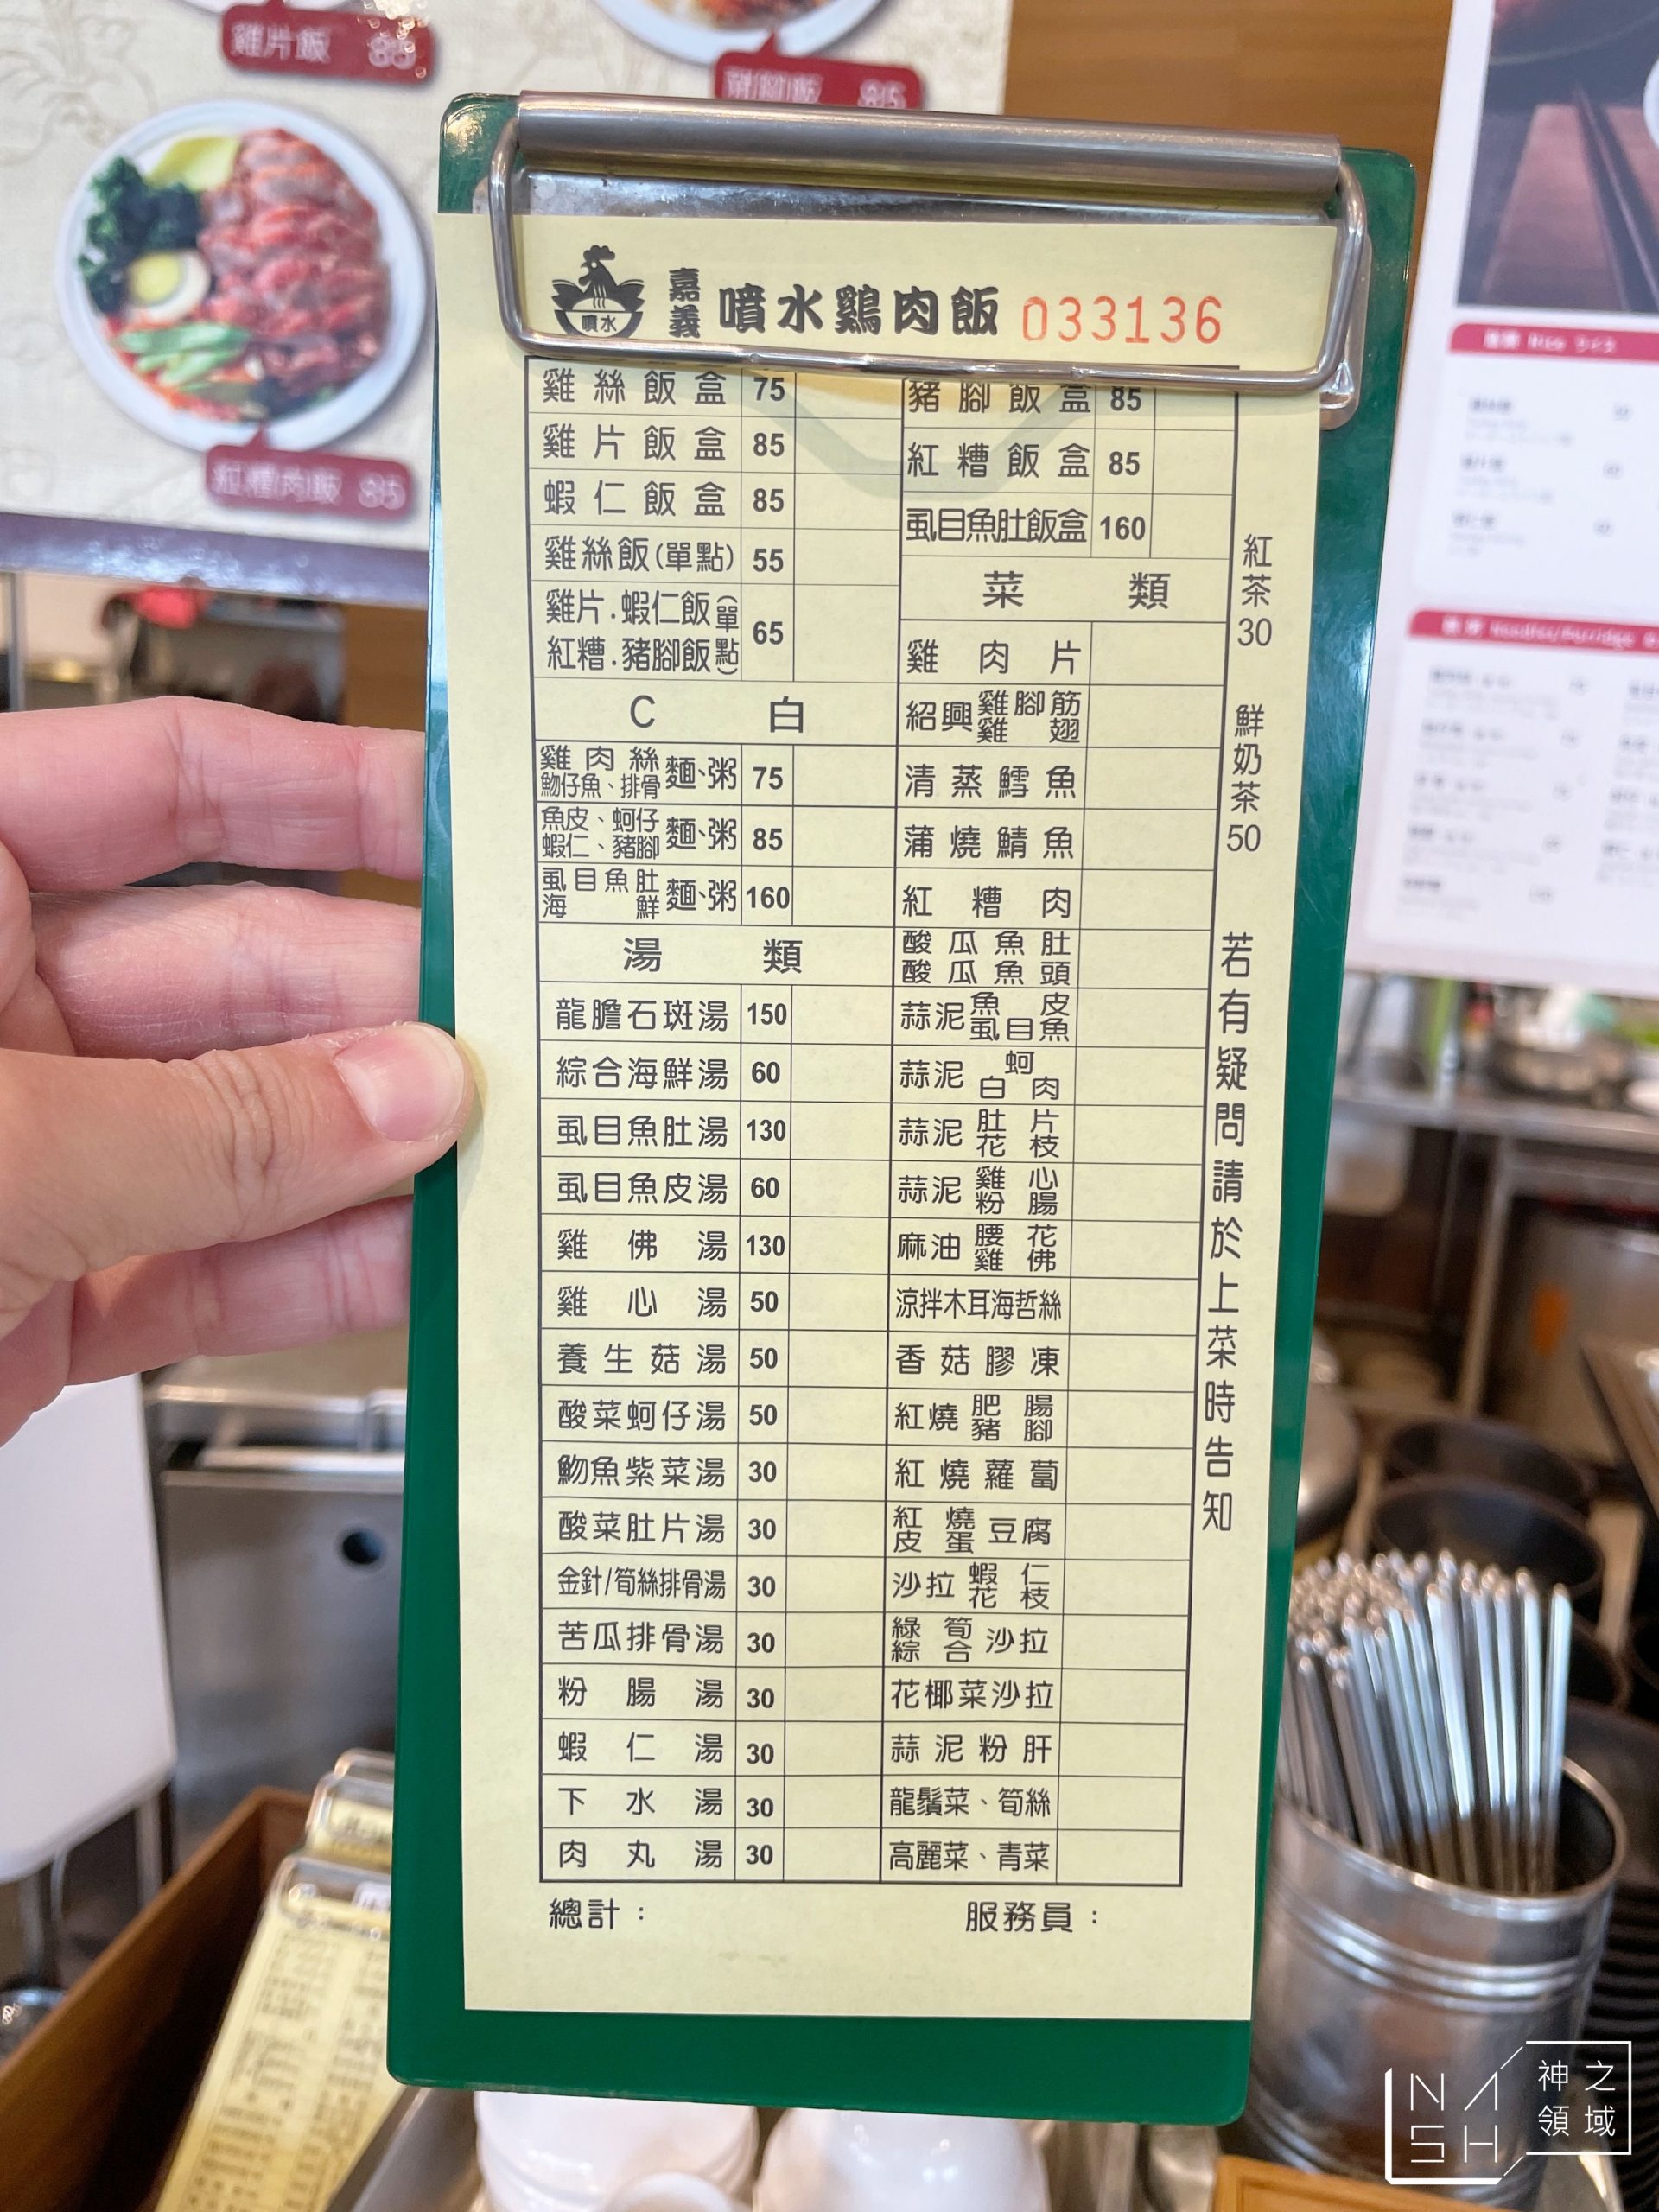 雞片飯 85
豬腳飯 85
紅糟肉飯 85
噴水
嘉義 噴水雞肉飯 033136
雞絲飯盒 75
雞片飯盒 85
蝦仁飯盒 85
雞絲飯(單點) 55
雞片.蝦仁飯
紅糟.豬腳飯
(單點) 65
C 白
雞肉絲
魩仔魚、排骨
麵、粥 75
魚皮、蚵仔
蝦仁、豬腳
麵、粥 85
虱目魚肚
海鮮
麵、粥 160
湯類
龍膽石斑湯 150
綜合海鮮湯 60
虱目魚肚湯 130
虱目魚皮湯 60
雞佛湯 130
雞心湯 50
養生菇湯 50
酸菜蚵仔湯 50
魩魚紫菜湯 30
酸菜肚片湯 30
金針/筍絲排骨湯 30
苦瓜排骨湯 30
粉腸湯 30
蝦仁湯 30
下水湯 30
肉丸湯 30
豬腳飯盒 85
紅糟飯盒 85
虱目魚肚飯盒 160
菜類
雞肉片
紹興
雞腳筋
雞翅
清蒸鱈魚
蒲燒鯖魚
紅糟肉
酸瓜魚肚
酸瓜魚頭
蒜泥
魚皮
虱目魚
蒜泥
蚵
白肉
蒜泥
肚片
花枝
蒜泥
雞心
粉腸
麻油
腰花
雞佛
涼拌木耳海哲絲
香菇膠凍
紅燒
肥腸
豬腳
紅燒蘿蔔
紅燒
皮蛋
豆腐
沙拉
蝦仁
花枝
綠筍
綜合
沙拉
花椰菜沙拉
蒜泥粉肝
龍鬚菜、筍絲
高麗菜、青菜
紅茶30 鮮奶茶50 若有疑問請於上菜時告知
總計：
服務員：
NASH
神之
領域